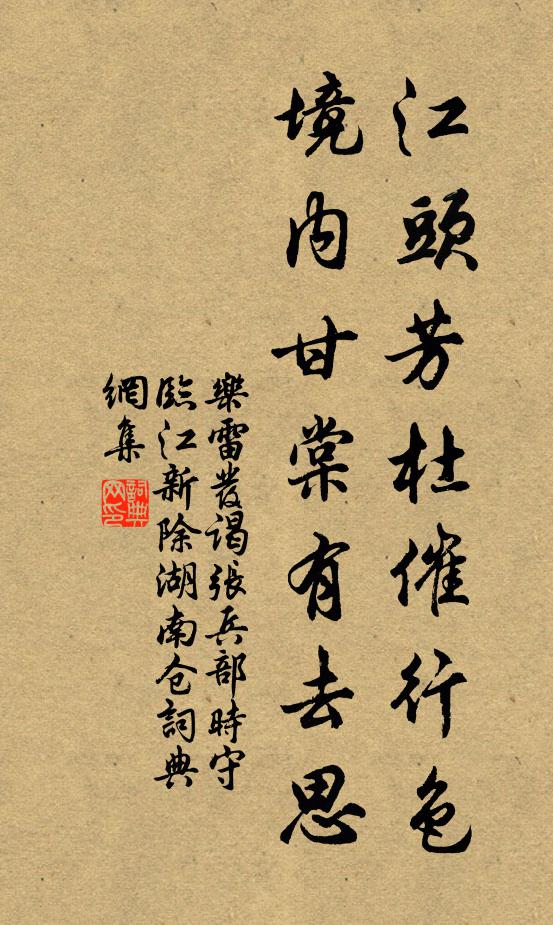 江頭芳杜催行色
境内甘棠有去思
樂雷發謁張兵部時守
臨江新除湖南仓詞典
網集
詞典
网印